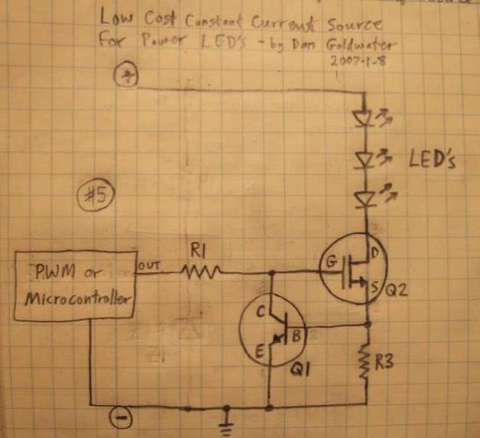 Low Cost Constant Current Source
For Power LED's - by Dan Goldwater
2007-1-8
+
LED's
#5
PWM or
Microcontroller
OUT
R1
G
D
S
Q2
C
B
E
Q1
R3
-